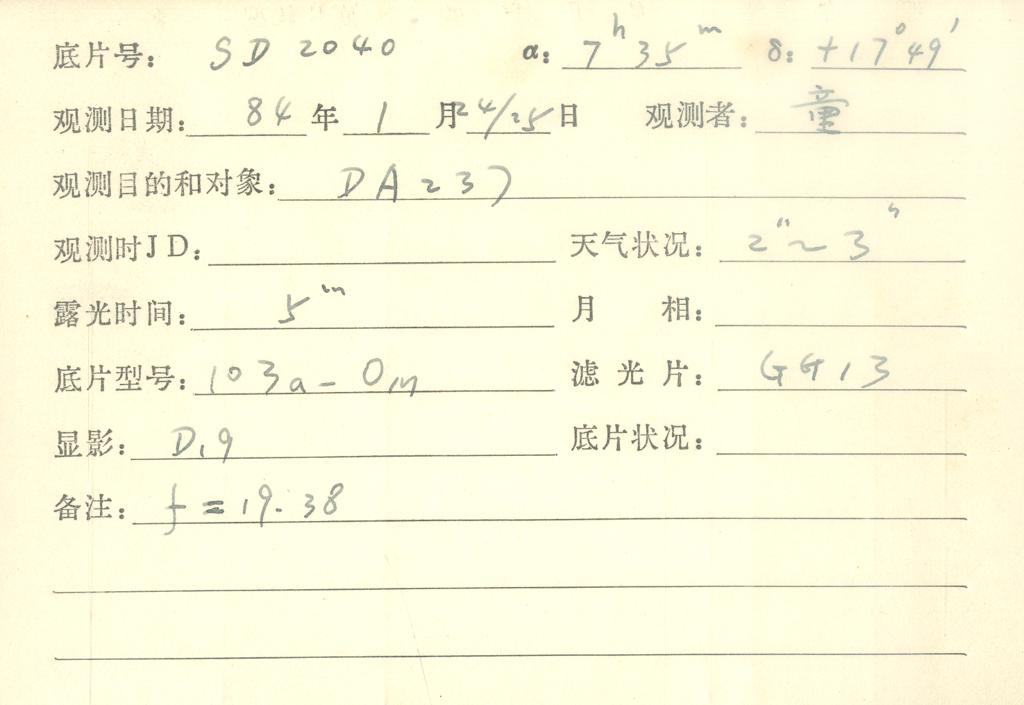 底片号: SD 2040 α: 7h 35m δ: +17°49′
观测日期: 84 年 1 月 24/25 日 观测者: 童
观测目的和对象: DA 237
观测时JD: 天气状况: 2″~3″
露光时间: 5m 月 相:
底片型号: 103a-O 滤光片: GG13
显影: D19 底片状况:
备注: f = 19.38